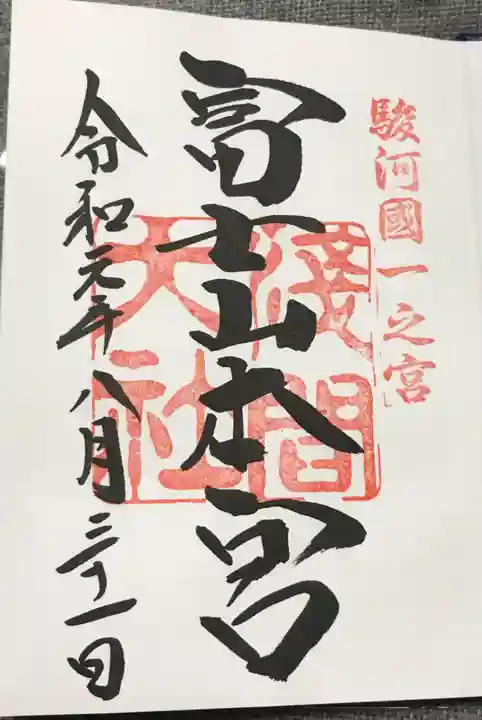 駿河國一之宮
冨士山本宮
淺間
大社
令和元年八月三十一日